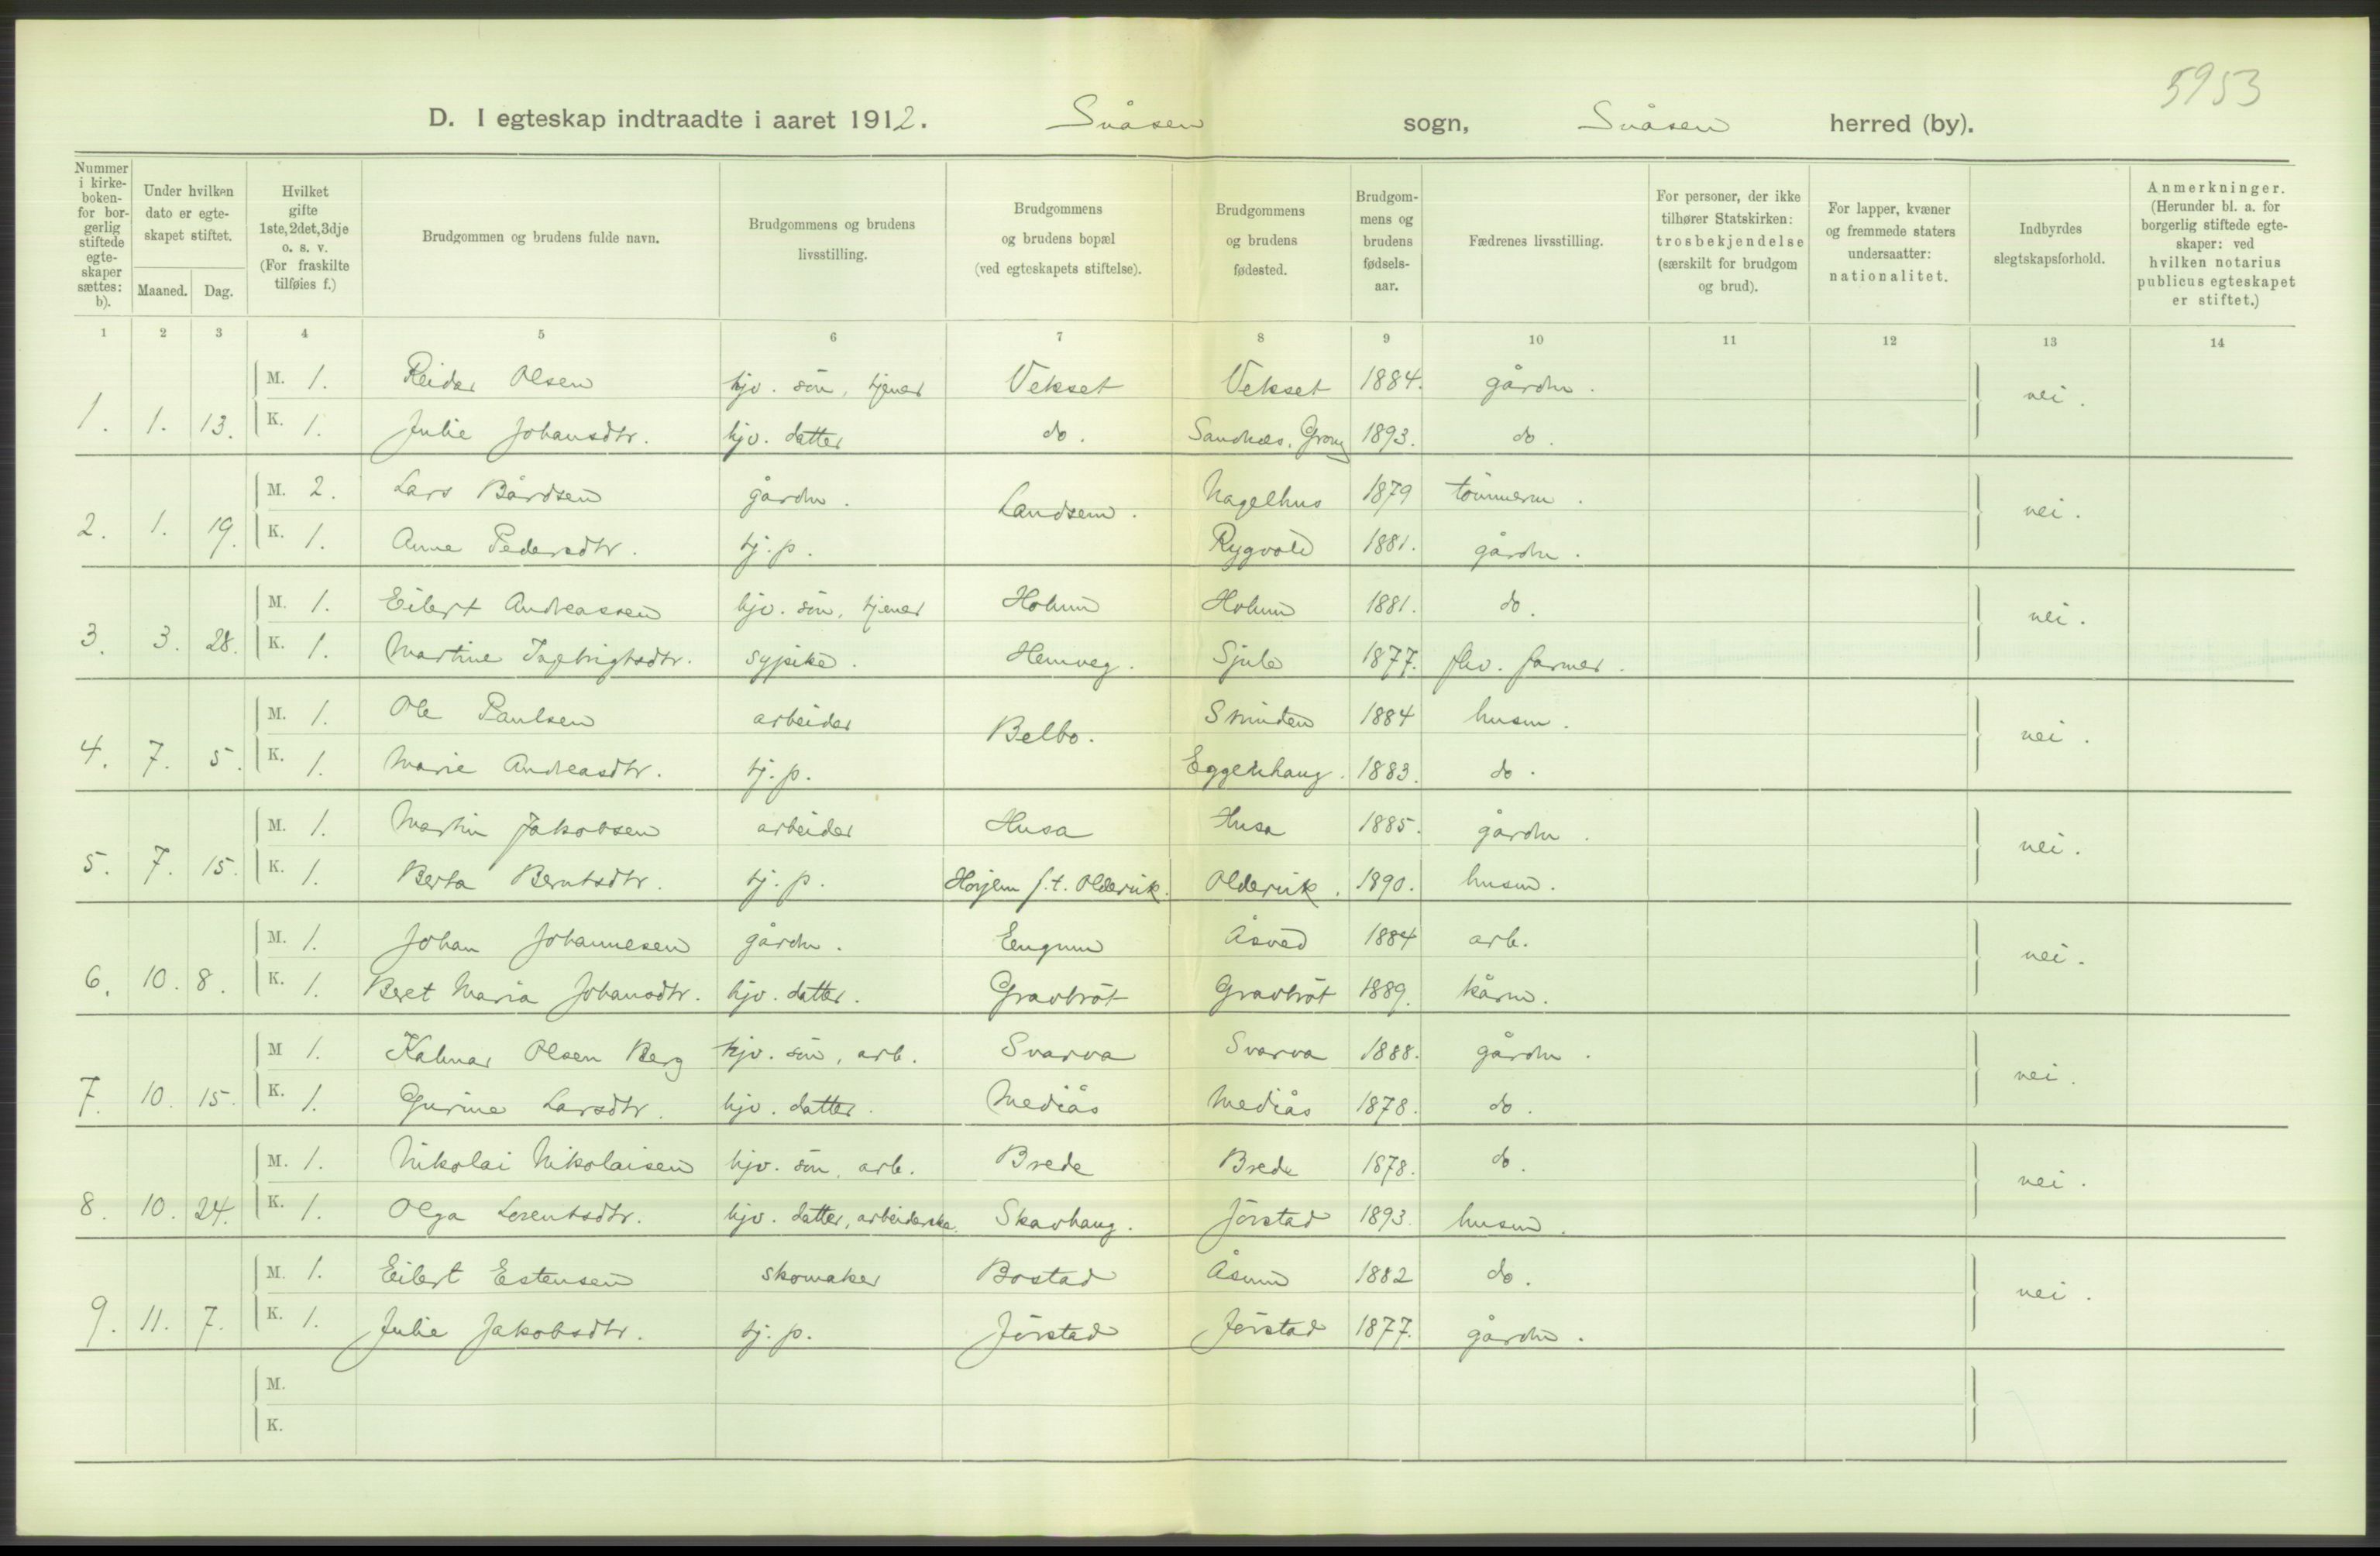 5953
D. I egteskap indtraadte i aaret 1912. Snåsen sogn, Snåsen herred (by).
Nummer i kirkeboken- for borgerlig stiftede egteskaper sættes: b).
Under hvilken dato er egteskapet stiftet.
Maaned. Dag.
Hvilket gifte 1ste, 2det, 3dje o. s. v. (For fraskilte tilføies f.)
Brudgommen og brudens fulde navn.
Brudgommens og brudens livsstilling.
Brudgommens og brudens bopæl (ved egteskapets stiftelse).
Brudgommens og brudens fødested.
Brudgommens og brudens fødselsaar.
Fædrenes livsstilling.
For personer, der ikke tilhører Statskirken: trosbekjendelse (særskilt for brudgom og brud).
For lapper, kvæner og fremmede staters undersaatter: nationalitet.
Indbyrdes slegtskapsforhold.
Anmerkninger. (Herunder bl. a. for borgerlig stiftede egteskaper: ved hvilken notarius publicus egteskapet er stiftet.)
1 2 3 4 5 6 7 8 9 10 11 12 13 14
M. 1. Reidar Olsen hjv. sön, tjener Vekset Vekset 1884. gårdm.
1. 1. 13. K. 1. Julie Johansdtr. hjv. datter do. Sandnes, Grong 1893. do. nei.
M. 2. Lars Bårdsen gårdm. Landsem. Nagelhus 1879 tömmerm.
2. 1. 19. K. 1. Anne Pedersdtr. tj. p. Rygvold 1881. gårdm. nei.
M. 1. Eilert Andreassen hjv. sön, tjener Holum Holum 1881. do.
3. 3. 28. K. 1. Martine Ingebrigtsdtr. sypike. Hemveg. Sjule 1877. fhv. farmer. nei.
M. 1. Ole Paulsen arbeider Belbo. Sminden 1884 husm.
4. 7. 5. K. 1. Marie Andreasdtr. tj. p. Eggenhaug. 1883. do. nei.
M. 1. Martin Jakobsen arbeider Husa Husa 1885. gårdm.
5. 7. 15. K. 1. Berta Berntsdtr. tj. p. Horjem f. t. Oldervik. Oldervik. 1890. husm. nei.
M. 1. Johan Johannesen gårdm. Engum Åsved 1884 arb.
6. 10. 8. K. 1. Beret Maria Johansdtr. hjv. datter. Gravbröt Gravbröt 1889. kårm. nei.
M 1. Kalmar Olsen Berg hjv. sön, arb. Svarva Svarva 1888. gårdm.
7. 10. 15. K. 1. Gurine Larsdtr. hjv. datter. Mediås Mediås 1878. do. nei.
M. 1. Nikolai Nikolaisen hjv. sön, arb. Brede Brede 1878. do.
8. 10. 24. K. 1. Olga Lorentsdtr. hjv. datter, arbeiderske. Skavhaug. Jörstad 1893. husm. nei.
M. 1. Eilert Estensen skomaker Bostad Åsum 1882 do.
9. 11. 7. K. 1. Julie Jakobsdtr. tj. p. Jörstad Jörstad 1877. gårdm. nei.
M.
K.